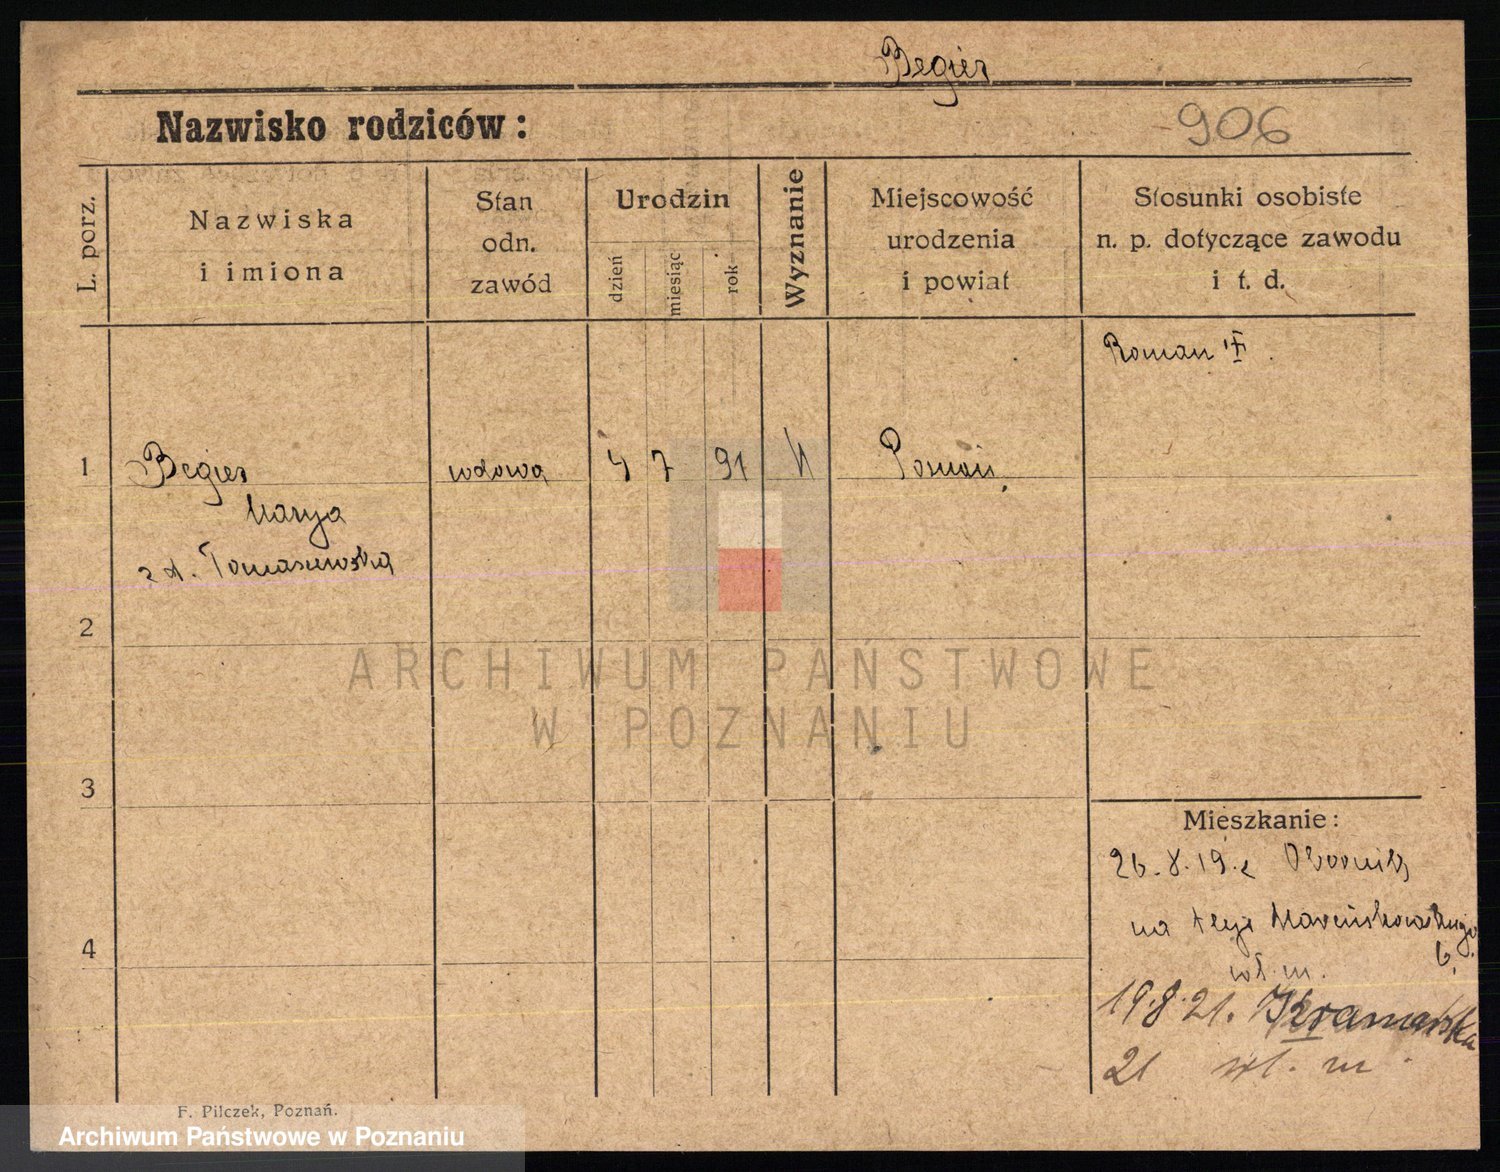 Begier
Nazwisko rodziców:
906
L. porz.
Nazwiska
i imiona
Stan
odn.
zawód
Urodzin
dzień
miesiąc
rok
Wyznanie
Miejscowość
urodzenia
i powiat
Stosunki osobiste
n. p. dotyczące zawodu
i t. d.
Roman
1
Begier
Marya
Tomaszewska
wdowa
4
7
91
Poznań
2
3
4
ARCHIWUM PAŃSTWOWE
W POZNANIU
Mieszkanie:
26.8.19. z Obornik
na Aleje Marcinkowskiego
6.
wł. m.
19.8.21. Kramarska
21 wł. m.
F. Pilczek, Poznań.
Archiwum Państwowe w Poznaniu